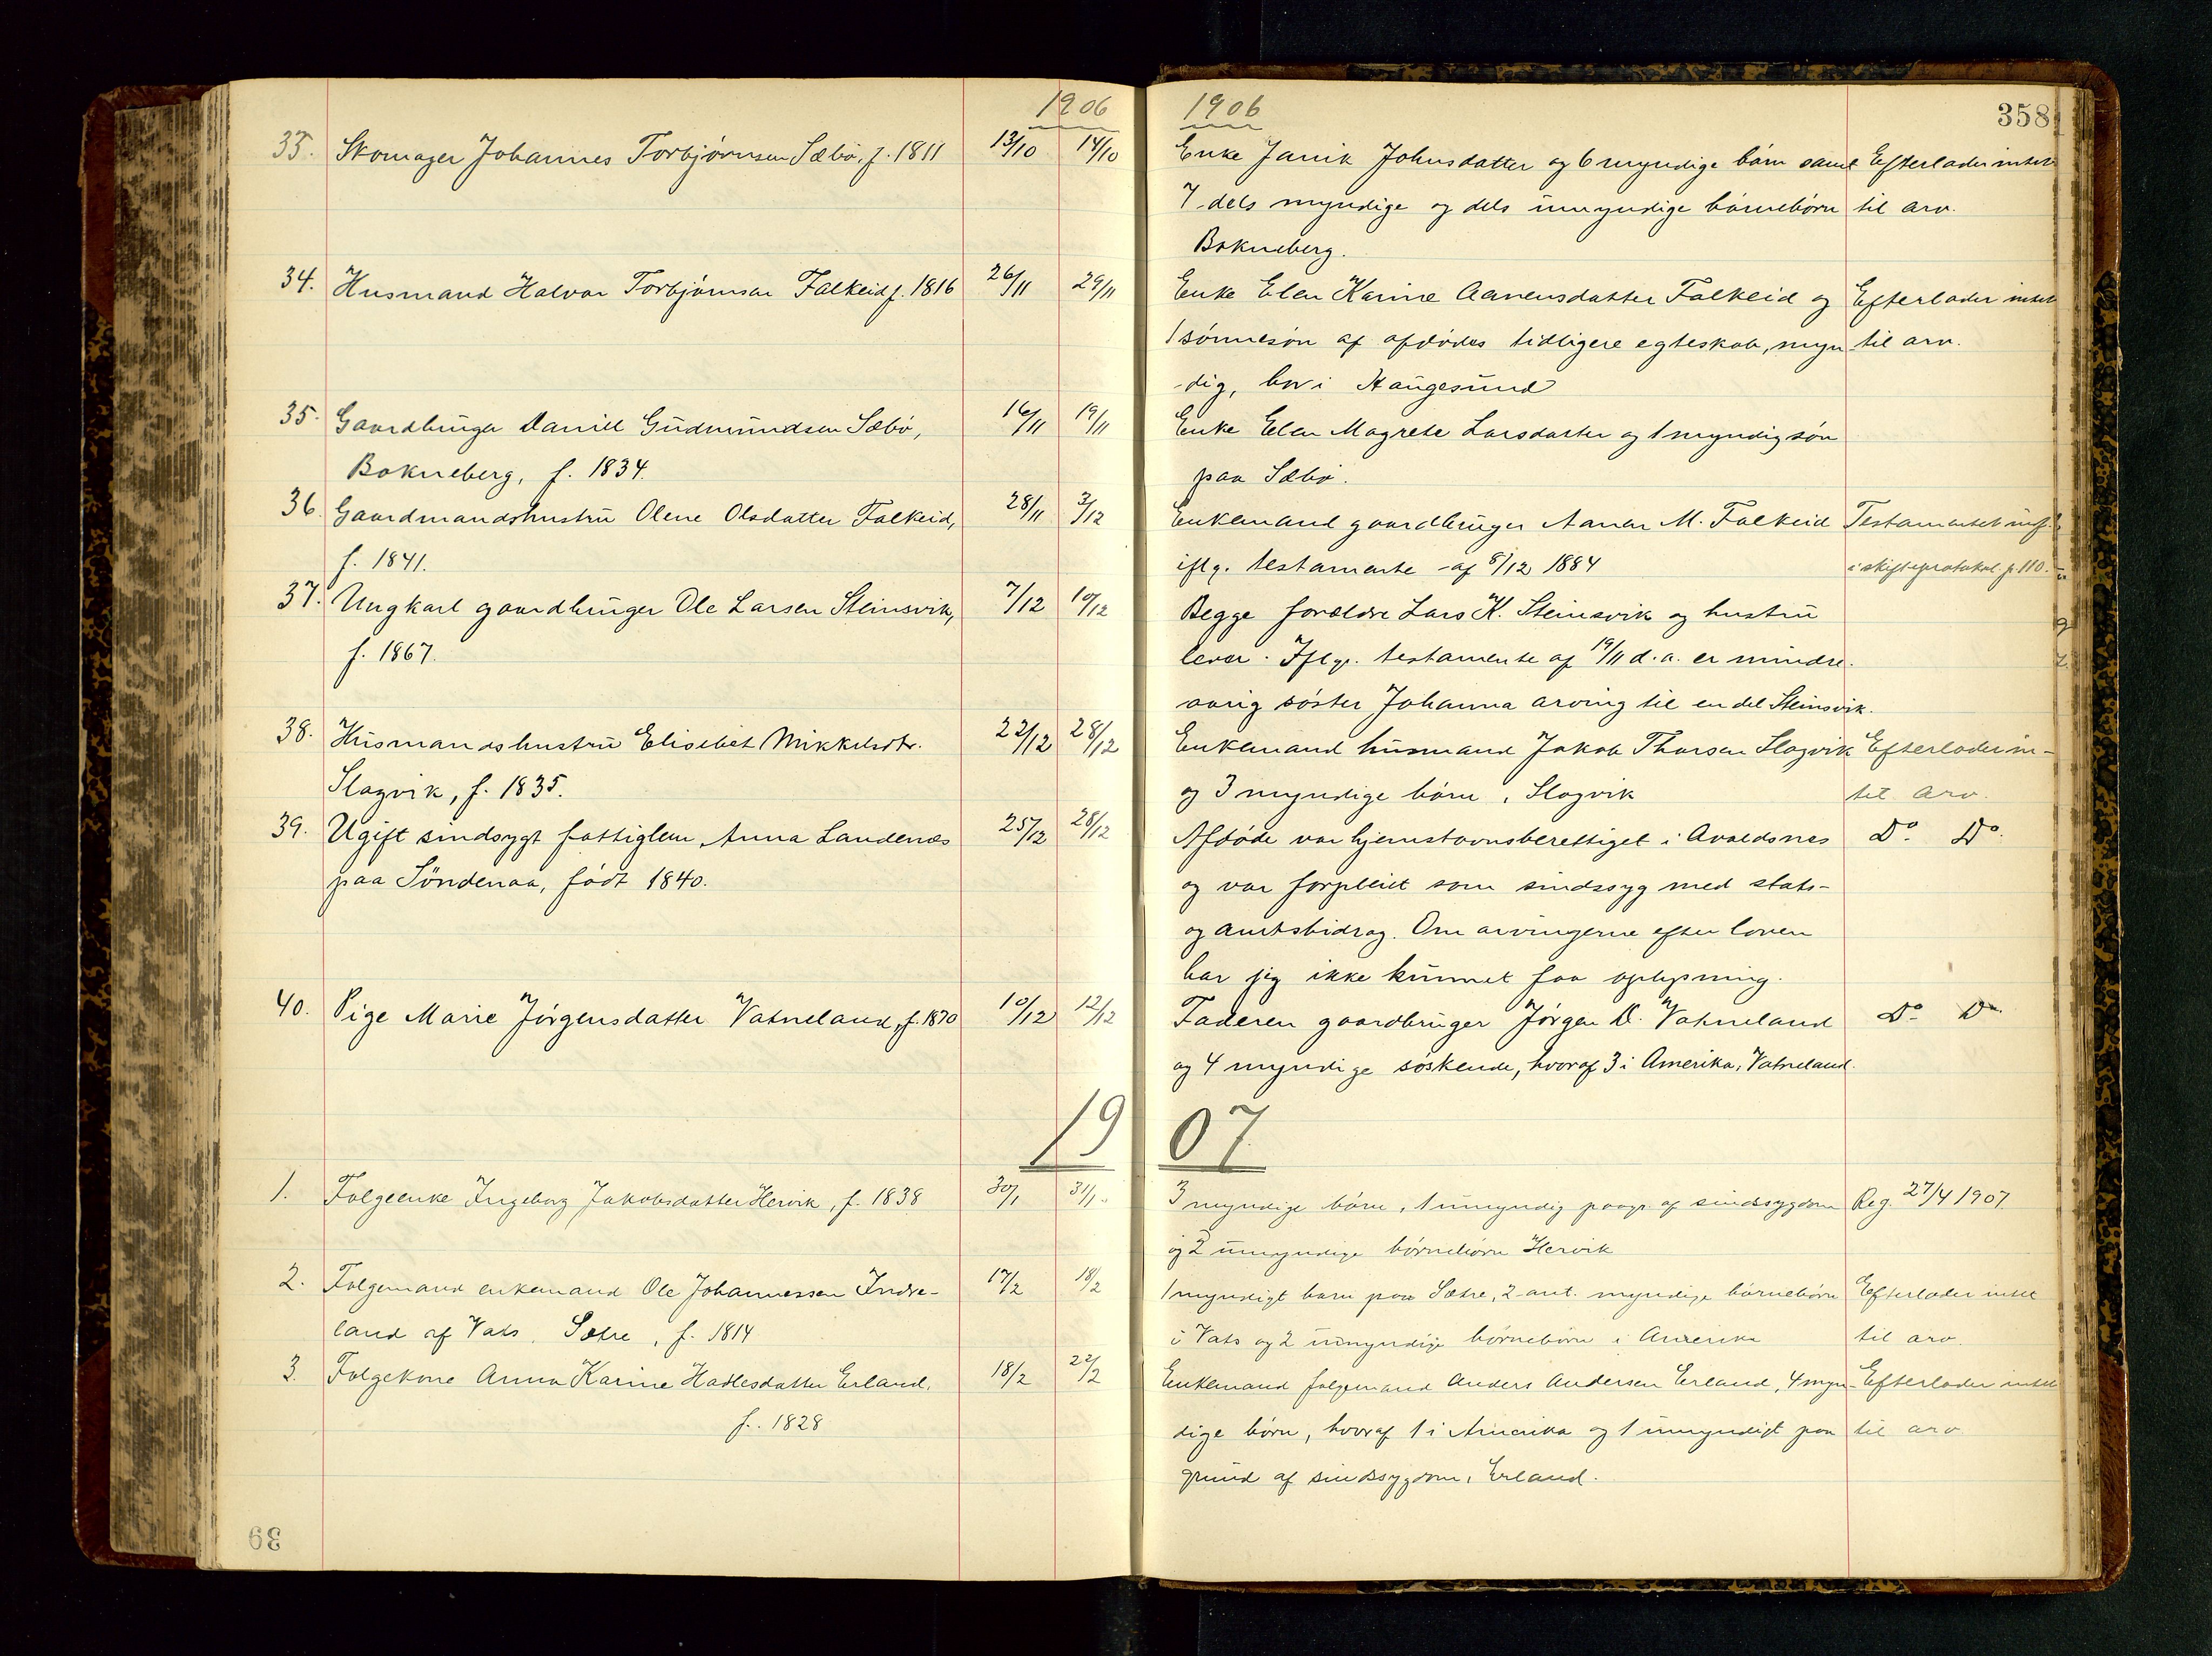 1906
33. Skomager Johannes Torbjørnsen Sæbø, f. 1811 13/10 14/10
34. Husmand Halvor Torbjørnsen Falkeid f. 1816 26/11 29/11
35. Gaardbruger Daniel Gudmundsen Sæbø, 16/11 19/11
Bokneberg, f. 1834.
36. Gaardmandshustru Olene Olsdatter Falkeid, 28/11 3/12
f. 1841.
37. Ungkarl gaardbruger Ole Larsen Steinsvik, 7/12 10/12
f. 1867.
38. Husmandshustru Elisebet Mikkelsdtr. 22/12 28/12
Slagvik, f. 1835.
39. Ugift sindsygt fattiglem Anna Landenæs 25/12 28/12
paa Söndenaa, født 1840.
40. Pige Marie Jørgensdatter Vatneland, f. 1870 10/12 12/12
19
1. Folgeenke Ingeborg Jakobsdatter Hervik, f. 1838 30/1 31/1
2. Folgemand enkemand Ole Johannessen Indre- 17/2 18/2
land af Vats, Sætre, f. 1814
3. Folgekone Anna Karine Hadlesdatter Erland, 18/2 22/2
f. 1828
39
1906
358
Enke Janik Johnsdatter og 6 myndige børn samt Efterlader intet
7 dels myndige og dels umyndige børnebørn til arv.
Bokneberg.
Enke Elen Karine Aanensdatter Falkeid og Efterlader intet
1 sønnesøn af afdødes tidligere egteskab, myn- til arv.
dig, bor i Haugesund
Enke Elen Magrete Larsdatter og 1 myndig søn
paa Sæbø.
Enkemand gaardbruger Aanen M. Falkeid Testamentet
iflg. testamente af 8/12 1884 i skifteprotokol p. 110.
Begge forældre Lars K. Steinsvik og hustru
lever. Iflg. testamente af 19/11 d. a. er mindre-
aarig søster Johanna arving til en del Steinsvik.
Enkemand husmand Jakob Thorsen Slagvik Efterlader in-
og 3 myndige børn, Slagvik tet arv.
Afdøde var hjemstavnsberettiget i Avaldsnes Do. Do.
og var forpleiet som sindssyg med stats-
og amtsbidrag. Om arvingerne efter loven
har jeg ikke kunnet faa oplysning.
Faderen gaardbruger Jørgen D. Vatneland Do. Do.
og 4 myndige søskende, hvoraf 3 i Amerika, Vatneland.
07
3 myndige børn, 1 umyndig paagr. af sindssygdom Reg. 27/4 1907.
og 2 umyndige børnebørn Hervik
1 myndigt barn paa Sætre, 2 ant. myndige børnebørn Efterlader intet
i Vats og 2 umyndige børnebørn i Amerika til arv.
Enkemand folgemand Anders Andersen Erland, 4 myn- Efterlader intet
dige børn, hvoraf 1 i Amerika og 1 umyndigt paa til arv.
grund af sindssygdom, Erland.